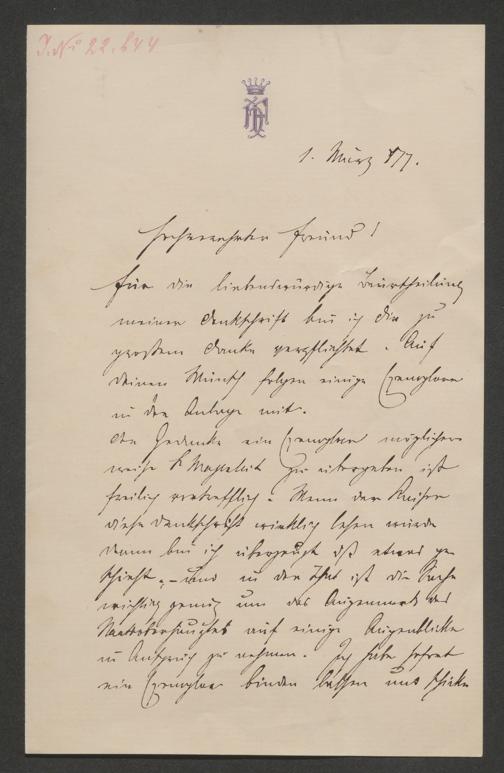 J. No 22.644
1. März 877.
Hochverehrter Freund!
Für die liebenswürdige Beurtheilung
meiner Denkschrift bin ich Dir zu
großem Danke verpflichtet. Auf
Deinen Wunsch folgen einige Exemplare
in der Anlage mit.
Der Gedanke ein Exemplar möglicher
weise Sr Majestät zu übergeben ist
freilich vortrefflich. Wenn der Kaiser
diese Denkschrift wirklich lesen würde
dann bin ich überzeugt dß etwas ge
schieht. – Und in der That ist die Sache
wichtig genug um das Augenmerk des
Staatsoberhauptes auf einige Augenblicke
in Anspruch zu nehmen. Ich habe sofort
ein Exemplar binden lassen und schicke